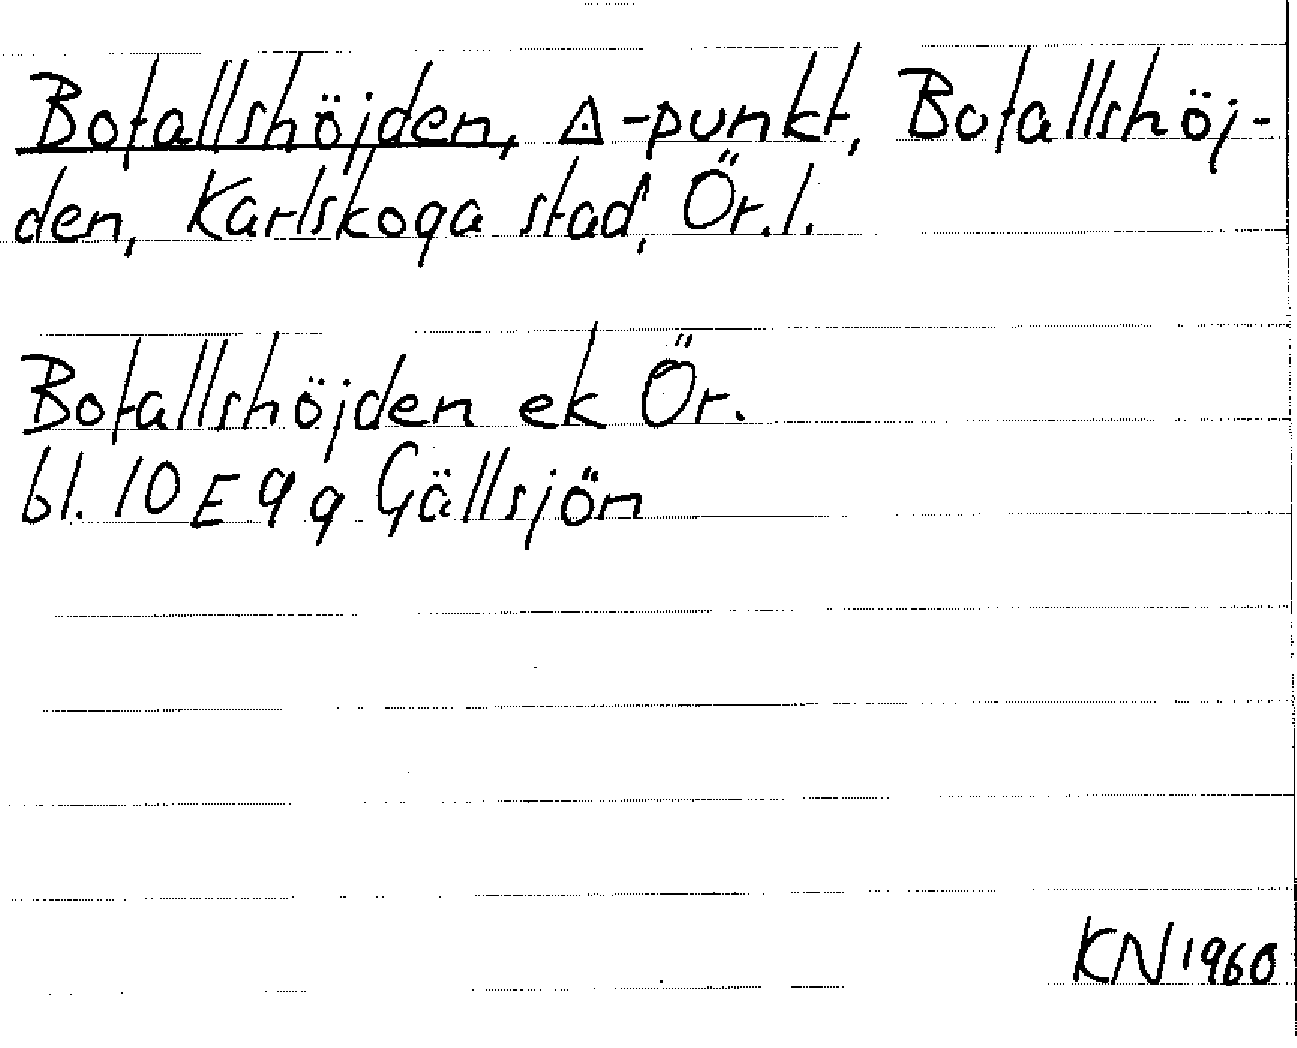 Bofallshöjden, ∆-punkt, Bofallshöj-
den, Karlskoga stad, Ör.l.
Bofallshöjden ek Ör.
bl. 10 E 9 g Gällsjön
KN 1960